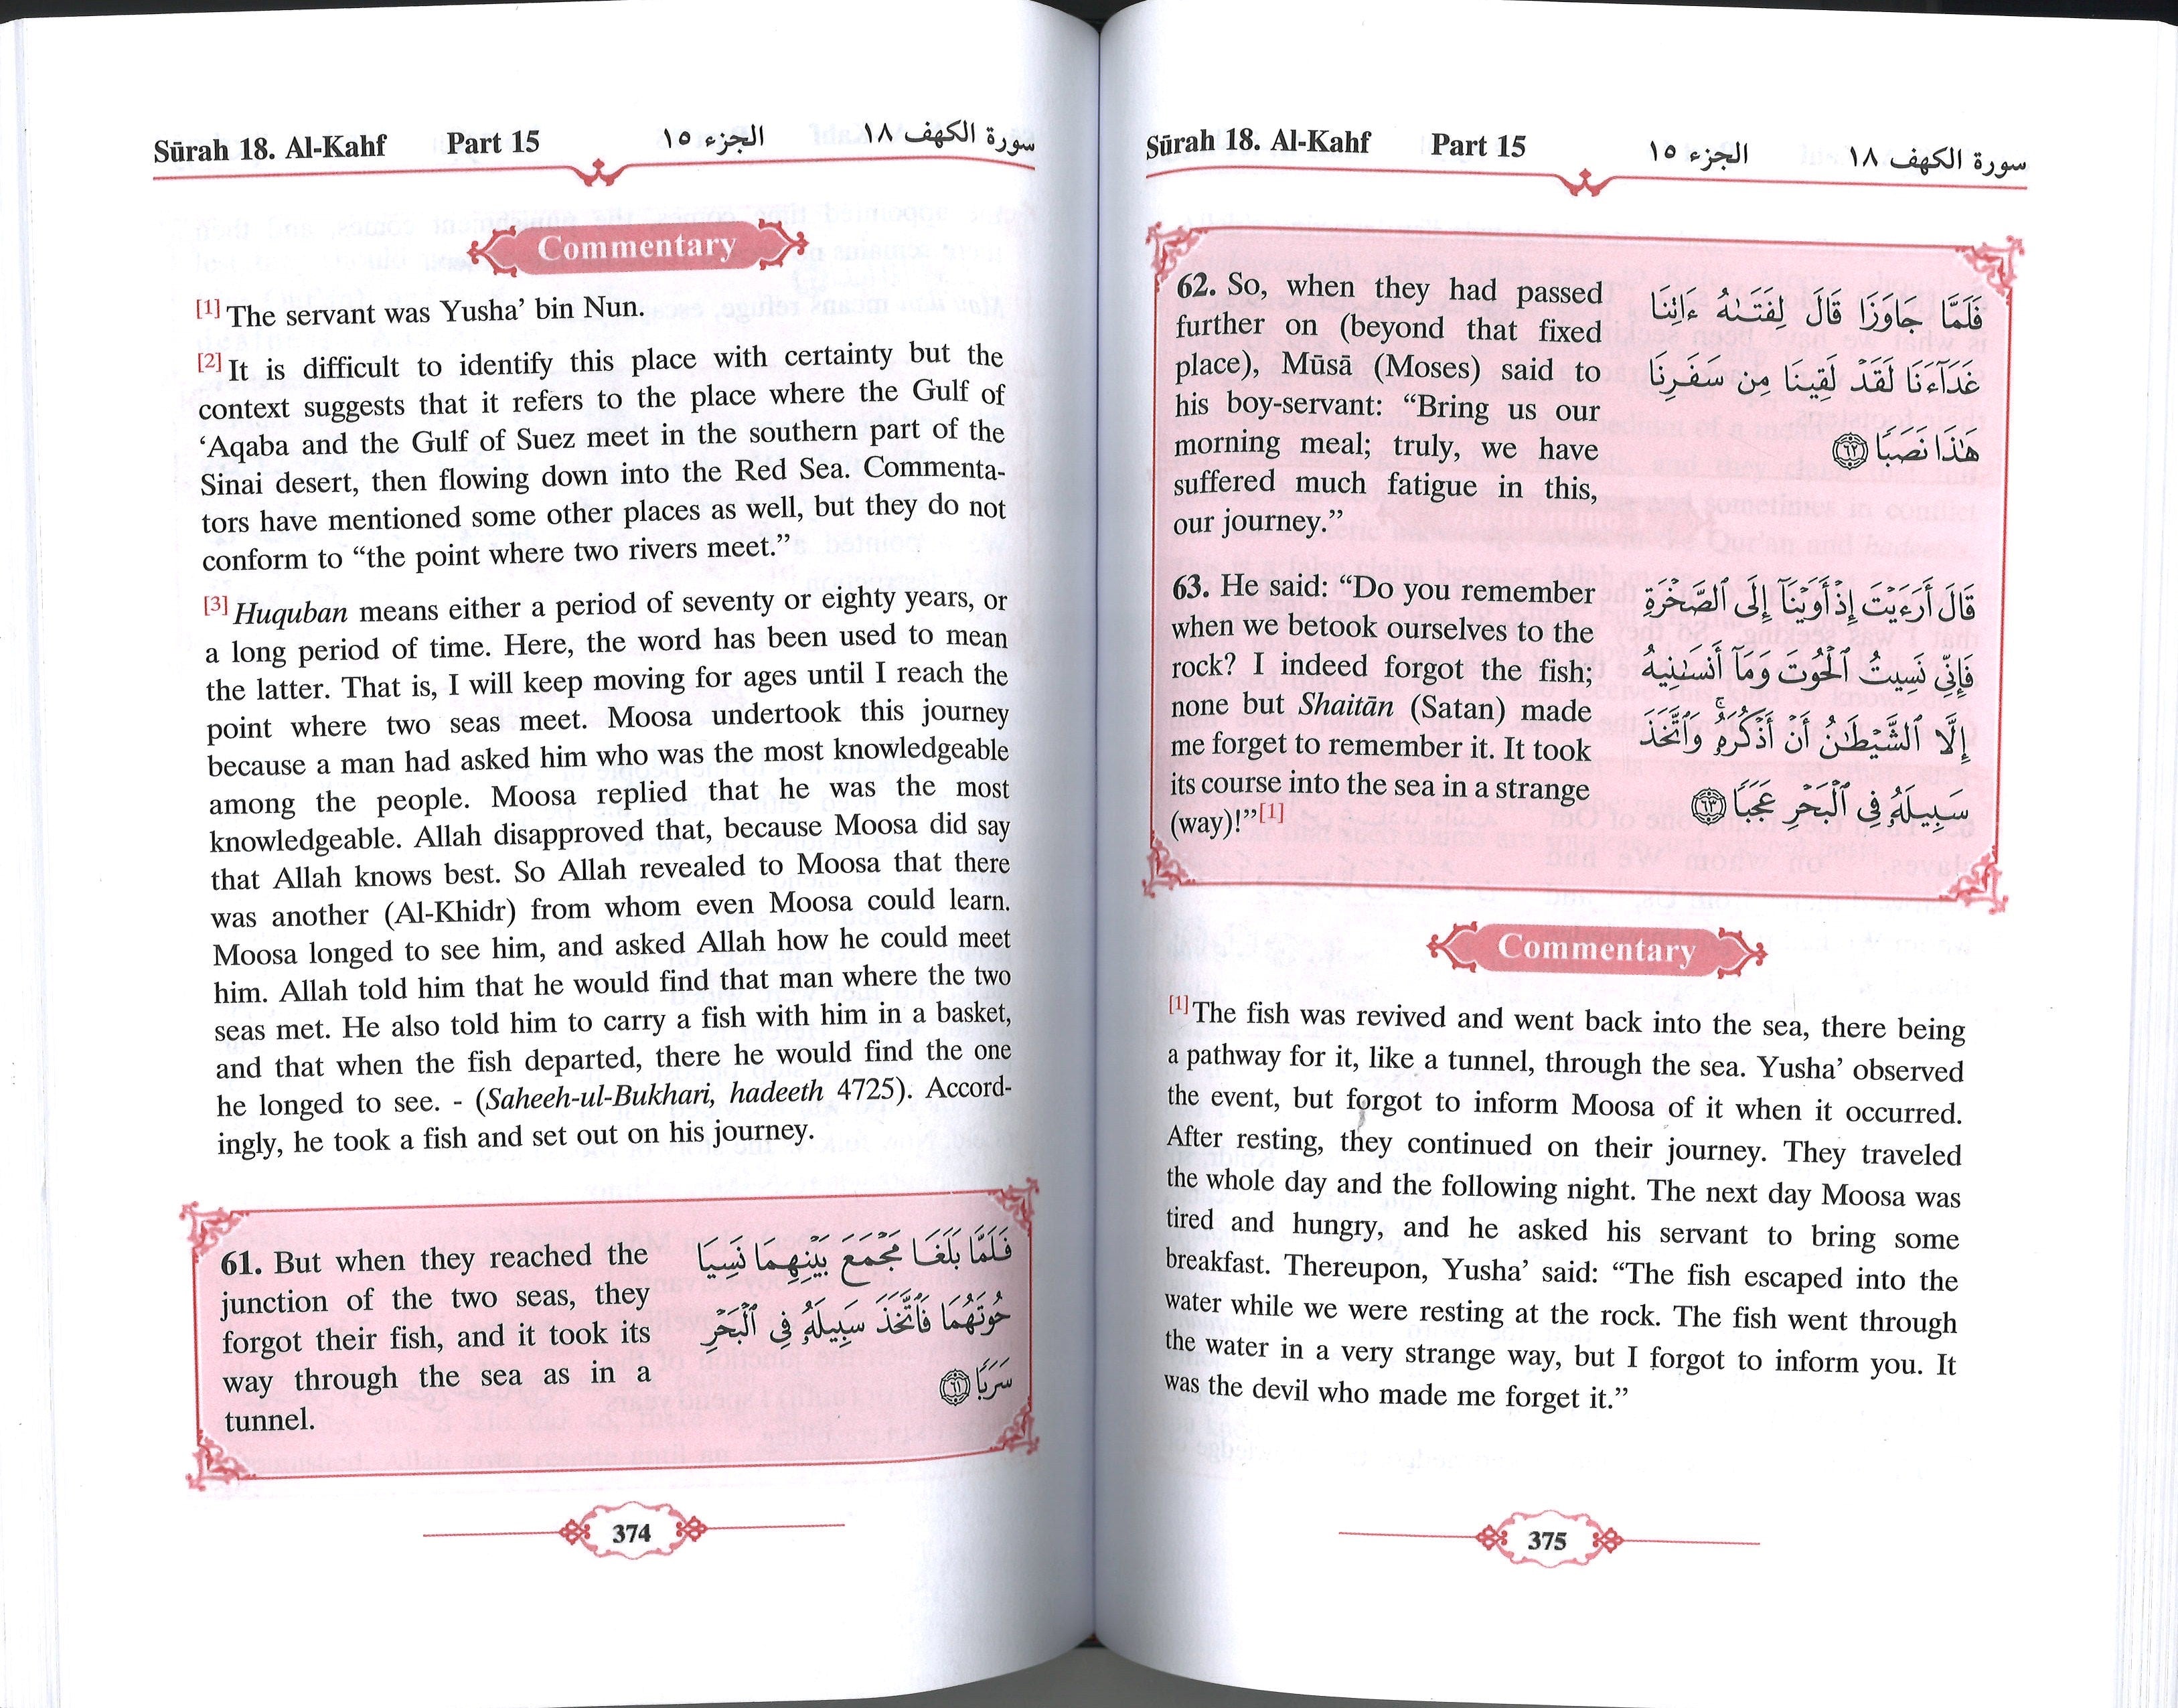 Sūrah 18. Al-Kahf Part 15 الجزء ١٥ سورة الكهف ١٨
Commentary
[1] The servant was Yusha’ bin Nun.
[2] It is difficult to identify this place with certainty but the
context suggests that it refers to the place where the Gulf of
‘Aqaba and the Gulf of Suez meet in the southern part of the
Sinai desert, then flowing down into the Red Sea. Commenta-
tors have mentioned some other places as well, but they do not
conform to “the point where two rivers meet.”
[3] Huquban means either a period of seventy or eighty years, or
a long period of time. Here, the word has been used to mean
the latter. That is, I will keep moving for ages until I reach the
point where two seas meet. Moosa undertook this journey
because a man had asked him who was the most knowledgeable
among the people. Moosa replied that he was the most
knowledgeable. Allah disapproved that, because Moosa did say
that Allah knows best. So Allah revealed to Moosa that there
was another (Al-Khidr) from whom even Moosa could learn.
Moosa longed to see him, and asked Allah how he could meet
him. Allah told him that he would find that man where the two
seas met. He also told him to carry a fish with him in a basket,
and that when the fish departed, there he would find the one
he longed to see. - (Saheeh-ul-Bukhari, hadeeth 4725). Accord-
ingly, he took a fish and set out on his journey.
61. But when they reached the
junction of the two seas, they
forgot their fish, and it took its
way through the sea as in a
tunnel.
فَلَمَّا بَلَغَا مَجْمَعَ بَيْنِهِمَا نَسِيَا
حُوتَهُمَا فَٱتَّخَذَ سَبِيلَهُۥ فِى ٱلْبَحْرِ
سَرَبًا ٦١
374
Sūrah 18. Al-Kahf Part 15 الجزء ١٥ سورة الكهف ١٨
62. So, when they had passed
further on (beyond that fixed
place), Mūsā (Moses) said to
his boy-servant: “Bring us our
morning meal; truly, we have
suffered much fatigue in this,
our journey.”
فَلَمَّا جَاوَزَا قَالَ لِفَتَىٰهُ ءَاتِنَا
غَدَآءَنَا لَقَدْ لَقِينَا مِن سَفَرِنَا
هَٰذَا نَصَبًا ٦٢
63. He said: “Do you remember
when we betook ourselves to the
rock? I indeed forgot the fish;
none but Shaitān (Satan) made
me forget to remember it. It took
its course into the sea in a strange
(way)!”[1]
قَالَ أَرَءَيْتَ إِذْ أَوَيْنَآ إِلَى ٱلصَّخْرَةِ
فَإِنِّى نَسِيتُ ٱلْحُوتَ وَمَآ أَنسَىٰنِيهُ
إِلَّا ٱلشَّيْطَٰنُ أَنْ أَذْكُرَهُۥ ۚ وَٱتَّخَذَ
سَبِيلَهُۥ فِى ٱلْبَحْرِ عَجَبًا ٦٣
Commentary
[1] The fish was revived and went back into the sea, there being
a pathway for it, like a tunnel, through the sea. Yusha’ observed
the event, but forgot to inform Moosa of it when it occurred.
After resting, they continued on their journey. They traveled
the whole day and the following night. The next day Moosa was
tired and hungry, and he asked his servant to bring some
breakfast. Thereupon, Yusha’ said: “The fish escaped into the
water while we were resting at the rock. The fish went through
the water in a very strange way, but I forgot to inform you. It
was the devil who made me forget it.”
375